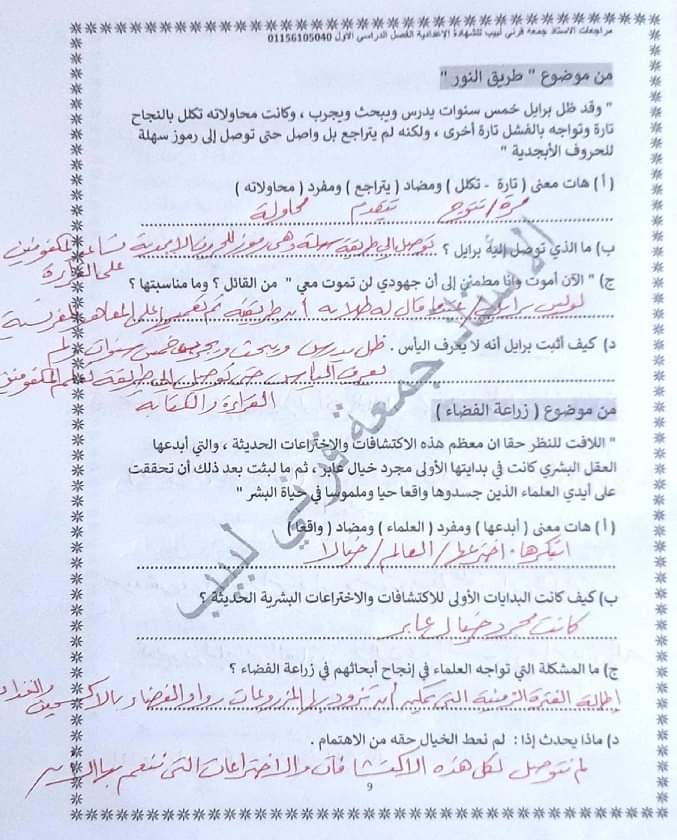 مراجعات الاستاذ جمعه قرني لبيب للشهادة الإعدادية الفصل الدراسي الاول 01156105040
من موضوع " طريق النور "
" وقد ظل برايل خمس سنوات يدرس ويبحث ويجرب ، وكانت محاولاته تكلل بالنجاح
تارة وتواجه بالفشل تارة أخرى ، ولكنه لم يتراجع بل واصل حتى توصل إلى رموز سهلة
للحروف الأبجدية "
( أ ) هات معنى ( تارة - تكلل ) ومضاد ( يتراجع ) ومفرد ( محاولاته )
مرة / تتوج يتقدم محاولة
ب) ما الذي توصل إليه برايل ؟ توصل إلي طريقة سهلة وهى رموز للحروف الابجدية تساعد المكفوفين
على القراءة
ج) " الآن أموت وأنا مطمئن إلى أن جهودي لن تموت معي " من القائل ؟ وما مناسبتها ؟
لويس برايل / عندما قال له طلابه أن طريقته تم تعميمها على المعاهد الفرنسية
د) كيف أثبت برايل أنه لا يعرف اليأس . ظل يدرس ويبحث ويجرب خمس سنوات ولم
يعرف اليأس حتى توصل إلى طريقة لتعليم المكفوفين
القراءة والكتابة
من موضوع ( زراعة الفضاء )
" اللافت للنظر حقا ان معظم هذه الاكتشافات والاختراعات الحديثة ، والتي أبدعها
العقل البشري كانت في بدايتها الأولى مجرد خيال عابر ، ثم ما لبثت بعد ذلك أن تحققت
على أيدي العلماء الذين جسدوها واقعا حيا وملموسا في حياة البشر "
( أ ) هات معنى ( أبدعها ) ومفرد ( العلماء ) ومضاد ( واقعا )
ابتكرها - اخترعها / العالم / خيالا
ب) كيف كانت البدايات الأولى للاكتشافات والاختراعات البشرية الحديثة ؟
كانت مجرد خيال عابر
ج) ما المشكلة التي تواجه العلماء في إنجاح أبحاثهم في زراعة الفضاء ؟
إطالة الفترة الزمنية التي يمكن أن تزود بها المزروعات رواد الفضاء بالأكسجين والغذاء
د) ماذا يحدث إذا : لم نعط الخيال حقه من الاهتمام .
لم نتوصل لكل هذه الاكتشافات والاختراعات التي ننعم بها
9
الاستاذ جمعة قرني لبيب